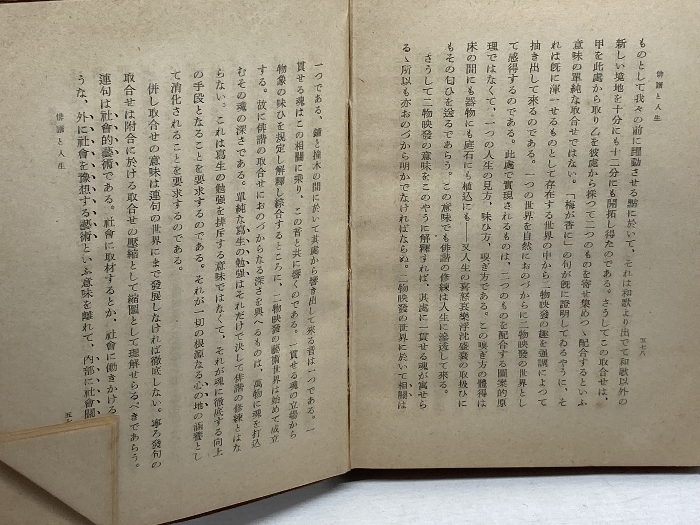 俳諧と人生
五七八
ものとして我々の前に躍動させる點に於いて、それは和歌より出でて和歌以外の
新しい境地を十分にも十二分にも開拓し得たのである。さうしてこの取合せは、
甲を此處から取り乙を彼處から採つて二つのものを寄せ集めつゝ配合するといふ
意味の單純な取合せではない。「梅が香に」の句が既に證明してゐるやうに、そ
れは既に渾一せるものとして存在する世界の中から二物映發の趣を强調によつて
抽き出して來るのである。一つの世界を自然におのづからに二物映發の世界とし
て感得するのである。此處で實現されるものは、二つのものを配合する圖案的原
理ではなくて、一つの人生の見方、味ひ方、嗅ぎ方である。この嗅ぎ方の體得は
床の間にも器物にも庭石にも植込にも——又人生の喜怒哀樂浮沈盛衰の取扱ひに
もその匂ひを送るであらう。この意味でも俳諧の修練は人生に滲透して來る。
さうして二物映發の意味をこのやうに解釋すれば、其處に一貫せる魂が寓せら
るゝ所以も亦おのづから明かでなければならぬ。二物映發の世界に於いて相關は
一つである、鐘と撞木の間に於いて其處から響き出して來る音は一つである。一
貫せる魂はこの相關に乘り、この音と共に響くのである。一貫せる魂の立場から
物象の味ひを規定し解釋し綜合するところに、二物映發の藝術世界は始めて成立
する。故に俳諧の取合せにおのづからなる深さを與へるものは、萬物に魂を打込
むその魂の深さである。單純な寫生の勉强はそれだけで決して俳諧の修練とはな
らない。これは寫生の勉强を排斥する意味ではなくて、それが魂に徹底する向上
の手段となることを要求するのである。それが一切の根源なる心の地の涵養とし
て消化されることを要求するのである。
併し取合せの意味は連句の世界にまで發展しなければ徹底しない。寧ろ發句の
取合せは附合に於ける取合せの壓縮として縮圖として理解せらるべきであらう。
連句は社會的藝術である。社會に取材するとか、社會に働きかける
うな、外に社會を豫想する藝術といふ意味を離れて、內部に社會關
俳諧と人生
五七